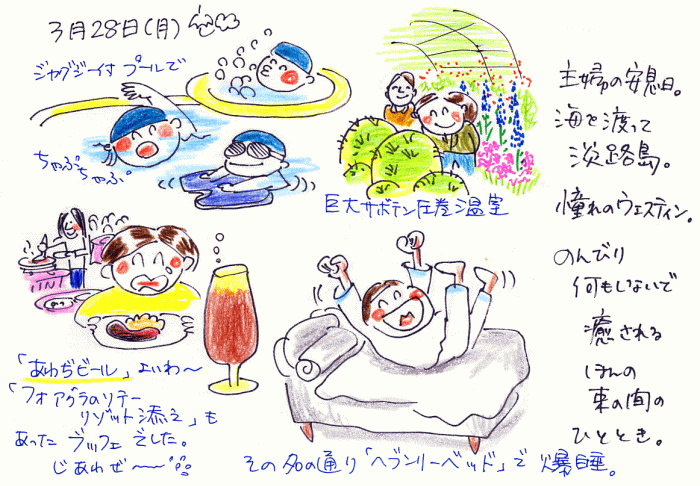 3月28日(月)
ジャグジー付プールで
ちゃぷちゃぷ
巨大サボテン圧巻温室
「あわぢビール」よいわ〜
「フォアグラのソテー
リゾット添え」も
あった ブッフェでした。
じあわせ〜〜
その名の通り「ヘブンリーベッド」で爆睡。
主婦の安息日。
海を渡って
淡路島。
憧れのウェスティン。
のんびり
何もしないで
癒される
ほんの
束の間の
ひととき。